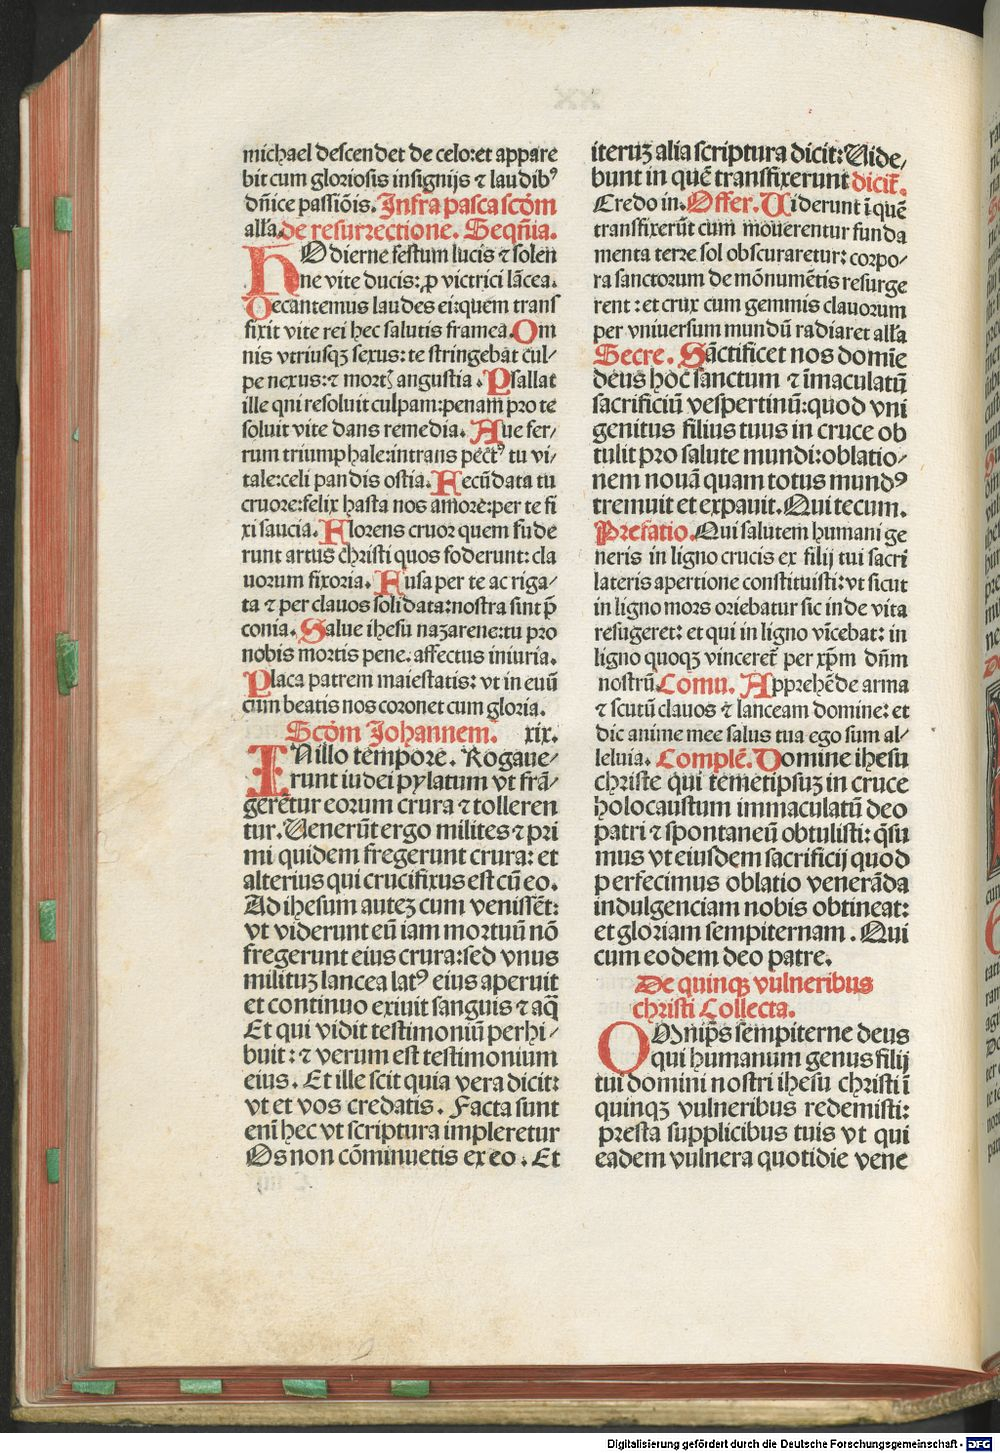 michael descendet de celo: et appare
bit cum gloriosis insignijs ⁊ laudibꝰ
dn̄ice passiōis. Infra pasca scd̄m
all̄a. de resurrectione. Seqn̄ia.
HOdierne festum lucis ⁊ solen
ne vite ducis: ꝓ victrici lācea.
Decantemus laudes ei: quem trans
fixit vite rei hec salutis framea. Om
nis vtriusqꝫ sexus: te stringebat cul⸗
pe nexus: ⁊ mort̄ angustia. Psallat
ille qni resoluit culpam: penam pro te
soluit vite dans remedia. Aue fer⸗
rum triumphale: intrans pect̄ꝰ tu vi⸗
tale: celi pandis ostia. Fecūdata tu
cruore: felix hasta nos amore: per te fi
xi saucia. Florens cruor quem fude
runt artus christi quos foderunt: cla
uorum fixoria. Fusa per te ac riga⸗
ta ⁊ per clauos solidata: nostra sint p̄
conia. Salue ihesu nazarene: tu pro
nobis mortis pene. affectus iniuria.
Placa patrem maiestatis: vt in euū
cum beatis nos coronet cum gloria.
Scd̄m Johannem. xix.
INillo tempore. Rogaue⸗
runt iudei pylatum vt frā⸗
gerētur eorum crura ⁊ tolleren
tur. Uenerūt ergo milites ⁊ pri
mi quidem fregerunt crura: et
alterius qui crucifixus est cū eo.
Ad ihesum auteꝫ cum venissēt:
vt viderunt eū iam mortuū nō
fregerunt eius crura: sed vnus
milituꝫ lancea latꝰ eius aperuit
et continuo exiuit sanguis ⁊ aq̄
Et qui vidit testimoniū perhi⸗
buit: ⁊ verum est testimonium
eius. Et ille scit quia vera dicit:
vt et vos credatis. Facta sunt
enī hec vt scriptura impleretur
Os non cōminuetis ex eo. Et
iteruꝫ alia scriptura dicit: Uide⸗
bunt in quē transfixerunt dicit̄.
Credo in. Offer. Uiderunt ī quē
transfixerūt cum mouerentur funda
menta terre sol obscuraretur: corpo⸗
ra sanctorum de mōnumētis resurge
rent: et crux cum gemmis clauorum
per vniuersum mundū radiaret all̄a
Secre. Sāctificet nos domīe
deus hoc sanctum ⁊ īmaculatū
sacrificiū vespertinū: quod vni
genitus filius tuus in cruce ob
tulit pro salute mundi: oblatio⸗
nem nouā quam totus mundꝰ
tremuit et expauit. Qui tecum.
Prefatio. Qui salutem humani ge
neris in ligno crucis ex filij tui sacri
lateris apertione constituisti: vt sicut
in ligno mors oriebatur sic inde vita
resugeret: et qui in ligno vīcebat: in
ligno quoqꝫ vinceret̄ per xp̄m dn̄m
nostrū. Comu. Apprehēde arma
⁊ scutū clauos ⁊ lanceam domine: et
dic anime mee salus tua ego sum al⸗
leluia. Complē. Domine ihesu
christe qui temetipsuꝫ in cruce
holocaustum immaculatū deo
patri ⁊ spontaneū obtulisti: q̄su
mus vt eiusdem sacrificij quod
perfecimus oblatio venerāda
indulgenciam nobis obtineat:
et gloriam sempiternam. Qui
cum eodem deo patre.
De quinqꝫ vulneribus
christi Collecta.
OMnip̄s sempiterne deus
qui humanum genus filij
tui domini nostri ihesu christi ī
quinqꝫ vulneribus redemisti:
presta supplicibus tuis vt qui
eadem vulnera quotidie vene
Digitalisierung gefördert durch die Deutsche Forschungsgemeinschaft - DFG